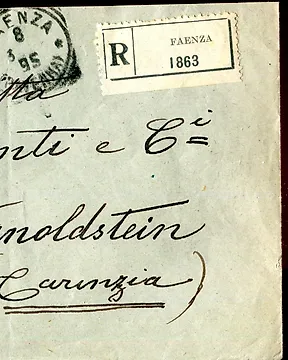 FAENZA
8
95
R
FAENZA
1863
tta
nti e Ci
noldstein
Carinzia)